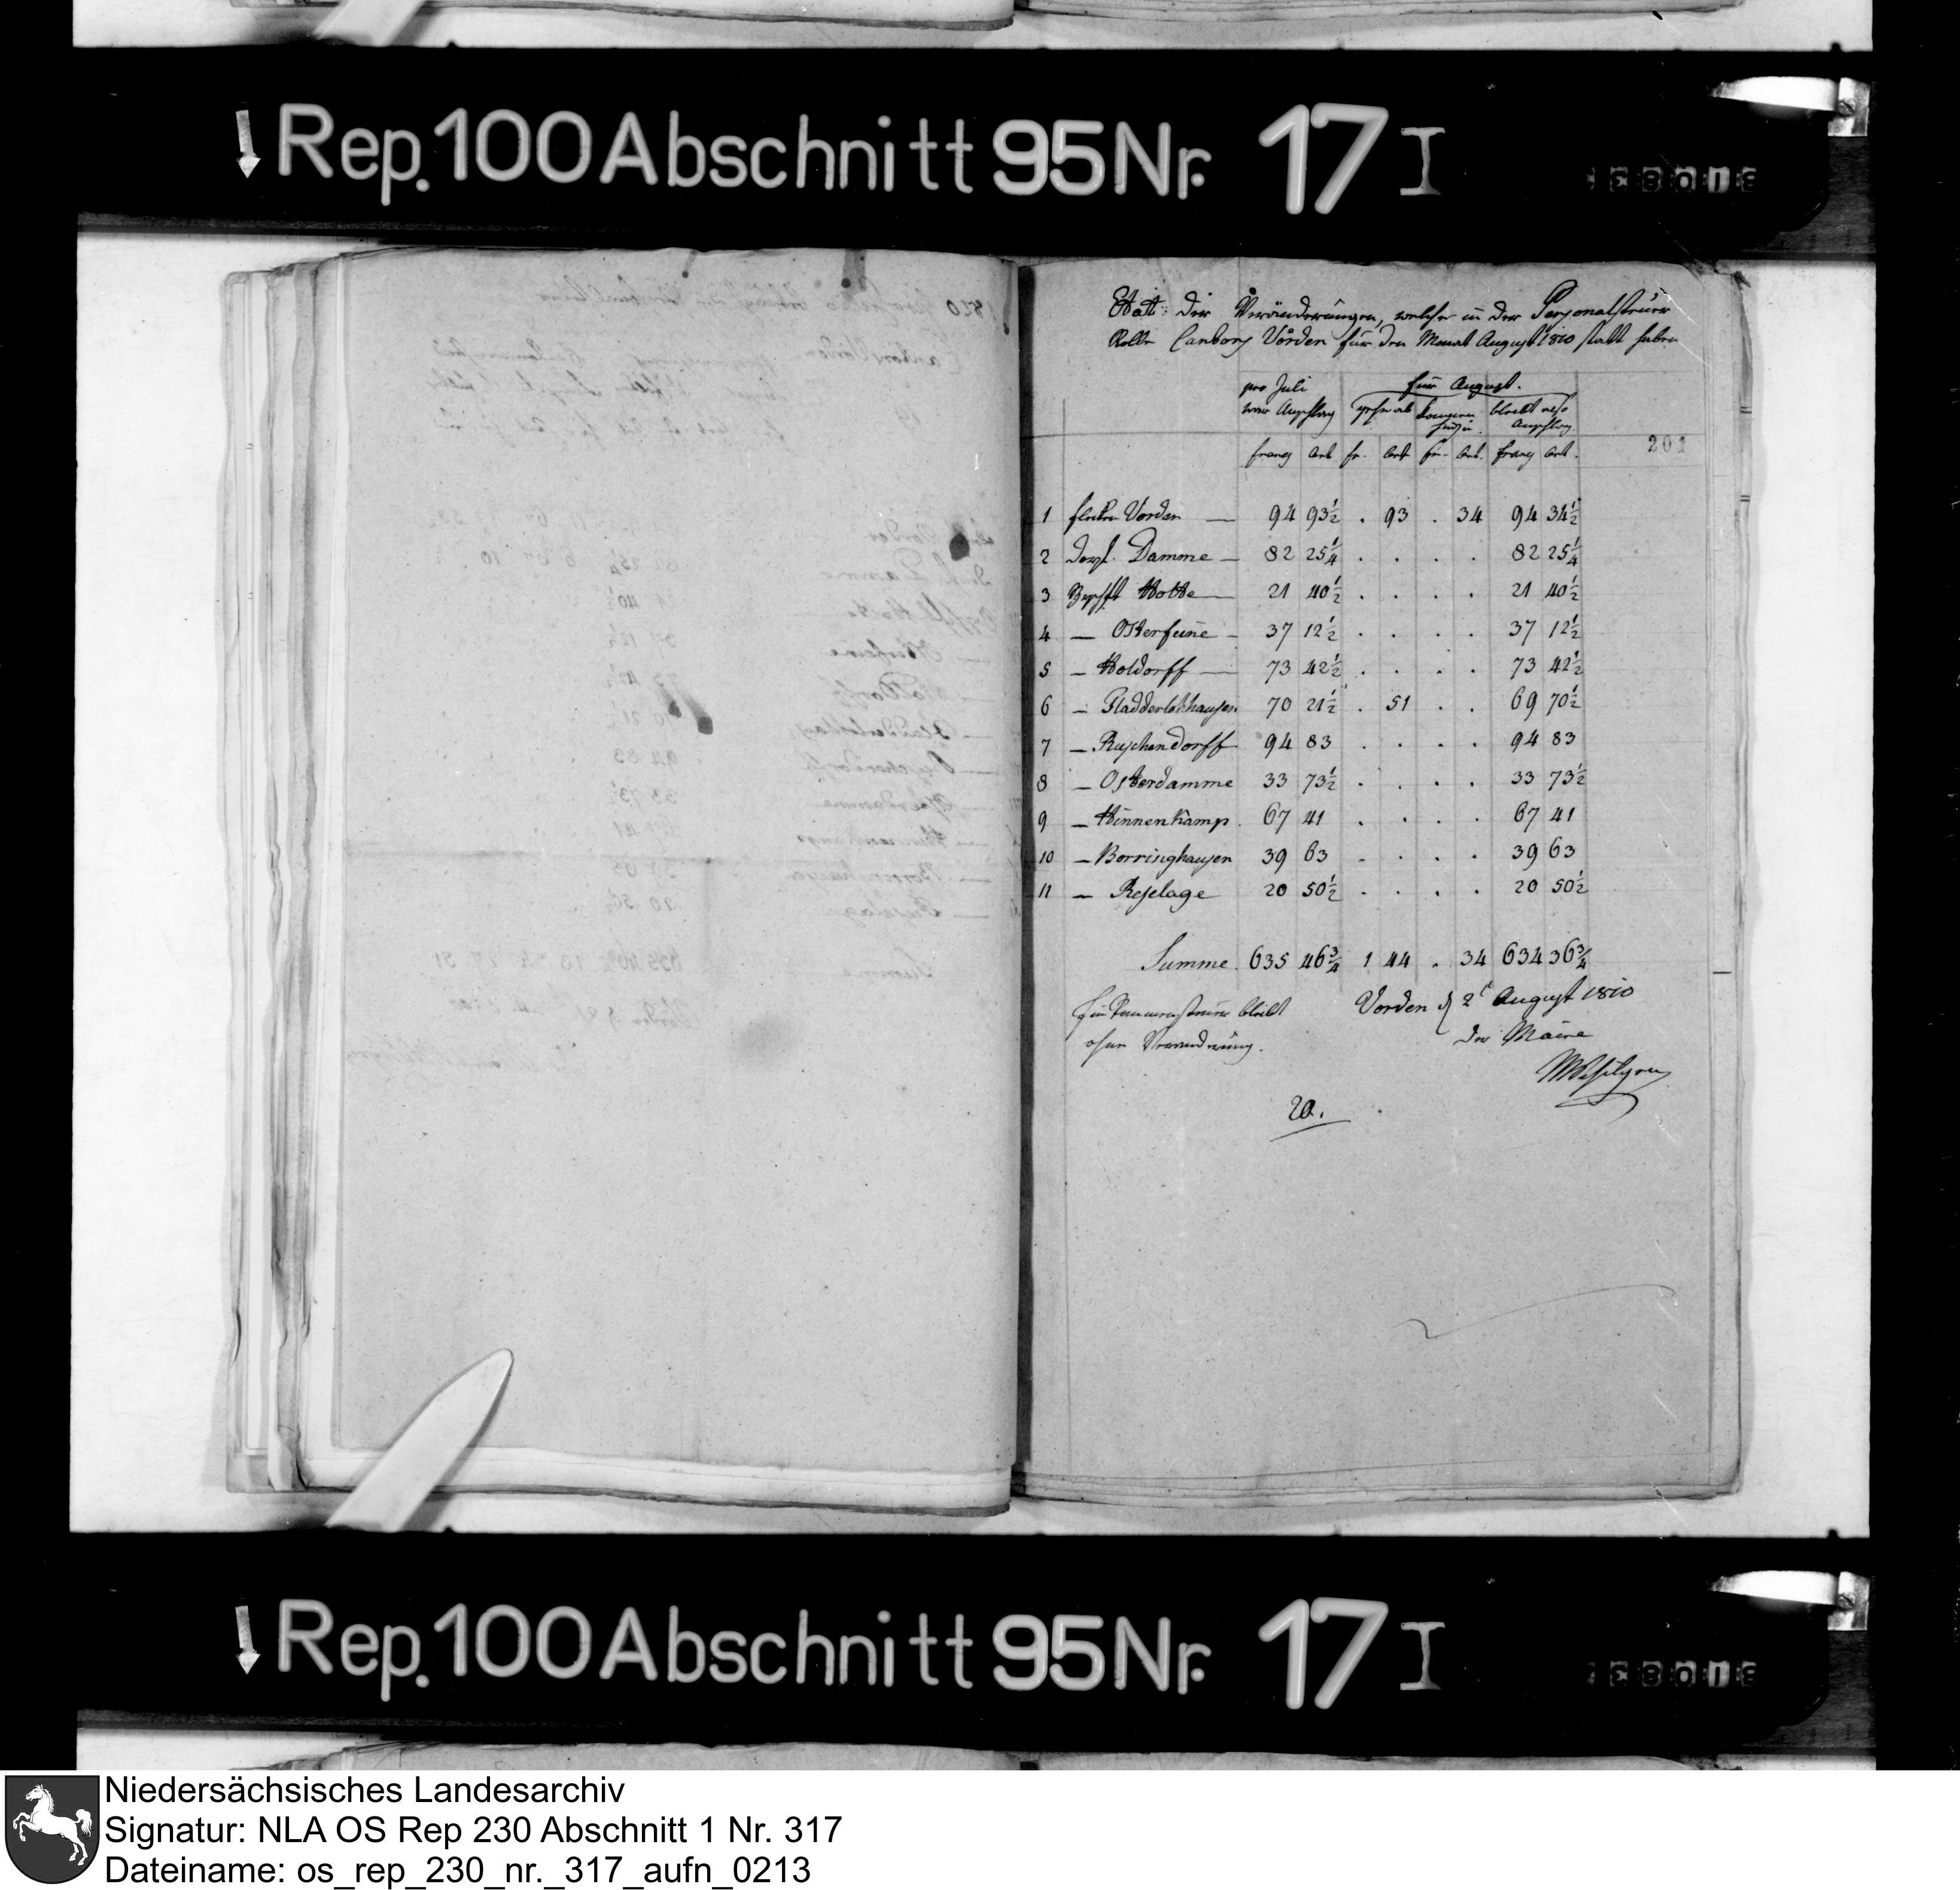 Rep. 100 Abschnitt 95 Nr. 17 I
Etatt der Veränderungen, welche in der Personalsteuer
Rolle Cantons Vörden für den Monat August 1810 statt haben
pro Juli für August.
war Anschlag gehen ab kommen bleibt also
hinzu. Anschlag
francs Cent fr. Cent fr. Cent. francs Cent.
201
1 flecken Vörden — 94 93½ . 93 . 34 94 34½
2 Dorf. Damme — 82 25¼ . . . . 82 25¼
3 Brschft Hotte — 21 40½ . . . . 21 40½
4 — Osterfeine — 37 12½ . . . . 37 12½
5 — Holdorff — 73 42½ . . . . 73 42½
6 — Fladderlohhausen 70 21½ . 51 . . 69 70½
7 — Ruschendorff 94 83 . . . . 94 83
8 — Osterdamme 33 73½ . . . . 33 73½
9 — Hinnenkamp . 67 41 . . . . 67 41
10 — Borringhausen 39 63 . . . . 39 63
11 — Reselage 20 50½ . . . . 20 50½
Summe . 635 46¾ 1 44 . 34 634 36¾
bleibt Vörden d 2t August 1810
ohne Veraenderung. der Maire
20.
Rep. 100 Abschnitt 95 Nr. 17 I
Niedersächsisches Landesarchiv
Signatur: NLA OS Rep 230 Abschnitt 1 Nr. 317
Dateiname: os_rep_230_nr._317_aufn_0213